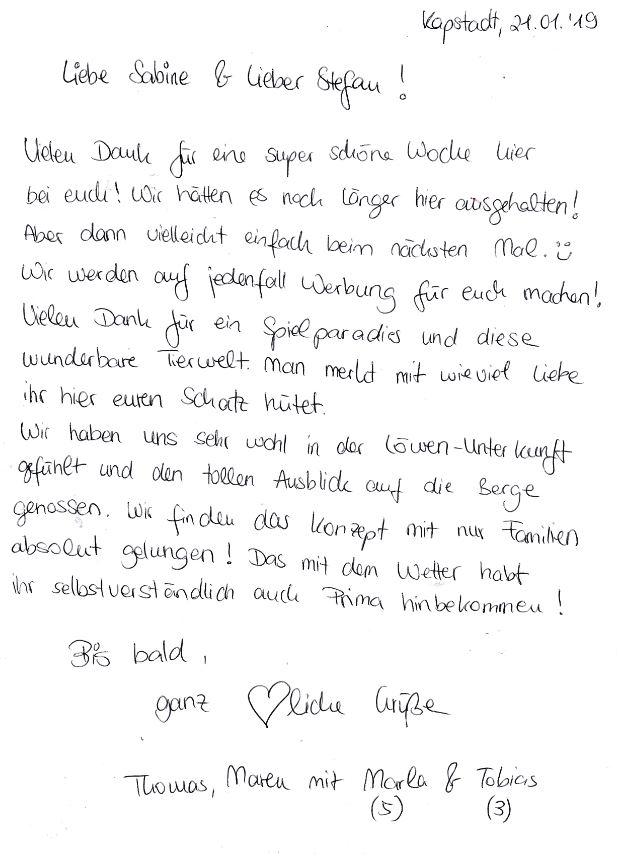 Kapstadt, 21.01.'19
Liebe Sabine & lieber Stefan!
Vielen Dank für eine super schöne Woche hier
bei euch! Wir hätten es noch länger hier ausgehalten!
Aber dann vielleicht einfach beim nächsten Mal. :)
Wir werden auf jedenfall Werbung für euch machen!
Vielen Dank für ein Spielparadies und diese
wunderbare Tierwelt. Man merkt mit wieviel Liebe
ihr hier euren Schatz hütet.
Wir haben uns sehr wohl in der Löwen-Unterkunft
gefühlt und den tollen Ausblick auf die Berge
genossen. Wir finden das Konzept mit nur Familien
absolut gelungen! Das mit dem Wetter habt
ihr selbstverständlich auch Prima hinbekommen!
Bis bald,
ganz ♡liche Grüße
Thomas, Maren mit Marla & Tobias
(5) (3)